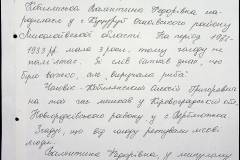 Кобилянська Валентина Федорівна на-
родилася у с. Крутузі Очаківського району
Миколаївської області. На період 1932-
1933 рр. мала 3 роки. Тому голоду не
пам'ятає. Зі слів батьків знає, що
було важко, але „виручала риба".
Чоловік - Кобилянський Олексій Григорович
на той час мешкав у Кіровоградській обл.
Новгородківського району у с. Вербівка
Згадує, що від голоду рятували лісові
люди.
Валентина Федорівна, у минулому